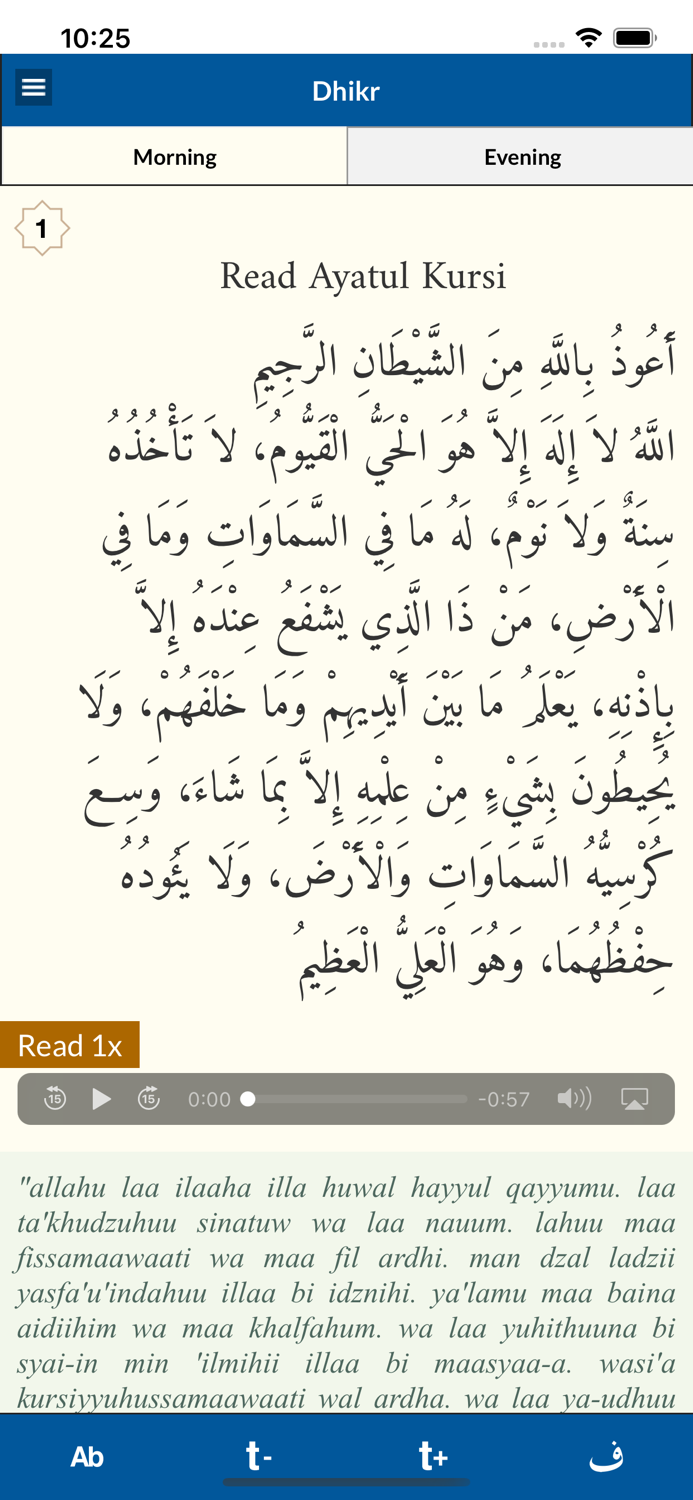 10:25
Dhikr
Morning
Evening
1
Read Ayatul Kursi
أَعُوذُ بِاللَّهِ مِنَ الشَّيْطَانِ الرَّجِيمِ
اللَّهُ لاَ إِلَهَ إِلاَّ هُوَ الْحَيُّ الْقَيُّومُ، لاَ تَأْخُذُهُ
سِنَةٌ وَلاَ نَوْمٌ، لَهُ مَا فِي السَّمَاوَاتِ وَمَا فِي
الْأَرْضِ، مَنْ ذَا الَّذِي يَشْفَعُ عِنْدَهُ إِلاَّ
بِإِذْنِهِ، يَعْلَمُ مَا بَيْنَ أَيْدِيهِمْ وَمَا خَلْفَهُمْ، وَلَا
يُحِيطُونَ بِشَيْءٍ مِنْ عِلْمِهِ إِلاَّ بِمَا شَاءَ، وَسِعَ
كُرْسِيُّهُ السَّمَاوَاتِ وَالْأَرْضَ، وَلَا يَئُودُهُ
حِفْظُهُمَا، وَهُوَ الْعَلِيُّ الْعَظِيمُ
Read 1x
15 15 0:00 -0:57
"allahu laa ilaaha illa huwal hayyul qayyumu. laa
ta'khudzuhuu sinatuw wa laa nauum. lahuu maa
fissamaawaati wa maa fil ardhi. man dzal ladzii
yasfa'u'indahuu illaa bi idznihi. ya'lamu maa baina
aidiihim wa maa khalfahum. wa laa yuhithuuna bi
syai-in min 'ilmihii illaa bi maasyaa-a. wasi'a
kursiyyuhussamaawaati wal ardha. wa laa ya-udhuu
Ab t- t+ ف